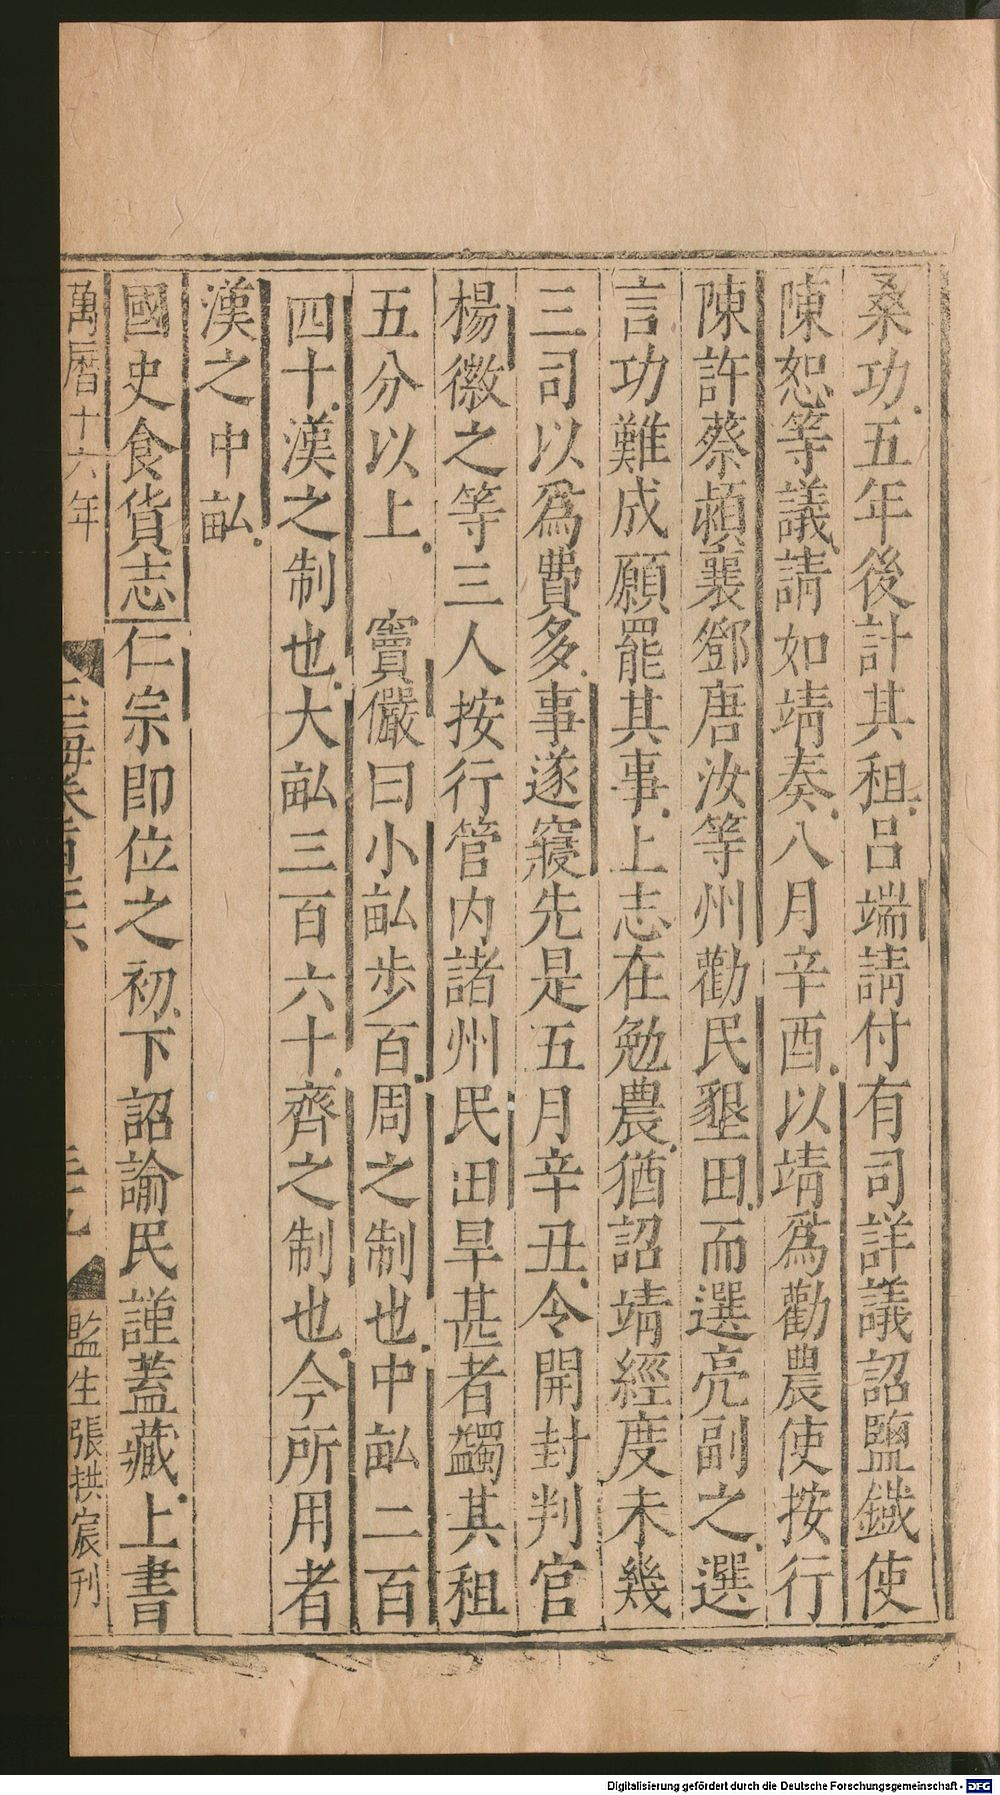 桑功五年後計其租呂端請付有司詳議詔鹽鐵使
陳恕等議請如靖奏八月辛酉以靖爲勸農使按行
陳許蔡潁襄鄧唐汝等州勸民墾田而選亮副之選
言功難成願罷其事上志在勉農猶詔靖經度未幾
三司以爲費多事遂寢先是五月辛丑令開封判官
楊徽之等三人按行管内諸州民田旱甚者蠲其租
五分以上 竇儼曰小畝步百周之制也中畝二百
四十漢之制也大畝三百六十齊之制也今所用者
漢之中畝
國史食貨志仁宗即位之初下詔諭民謹蓋藏上書
萬曆十六年
監生張拱宸刊
Digitalisierung gefördert durch die Deutsche Forschungsgemeinschaft - DFG